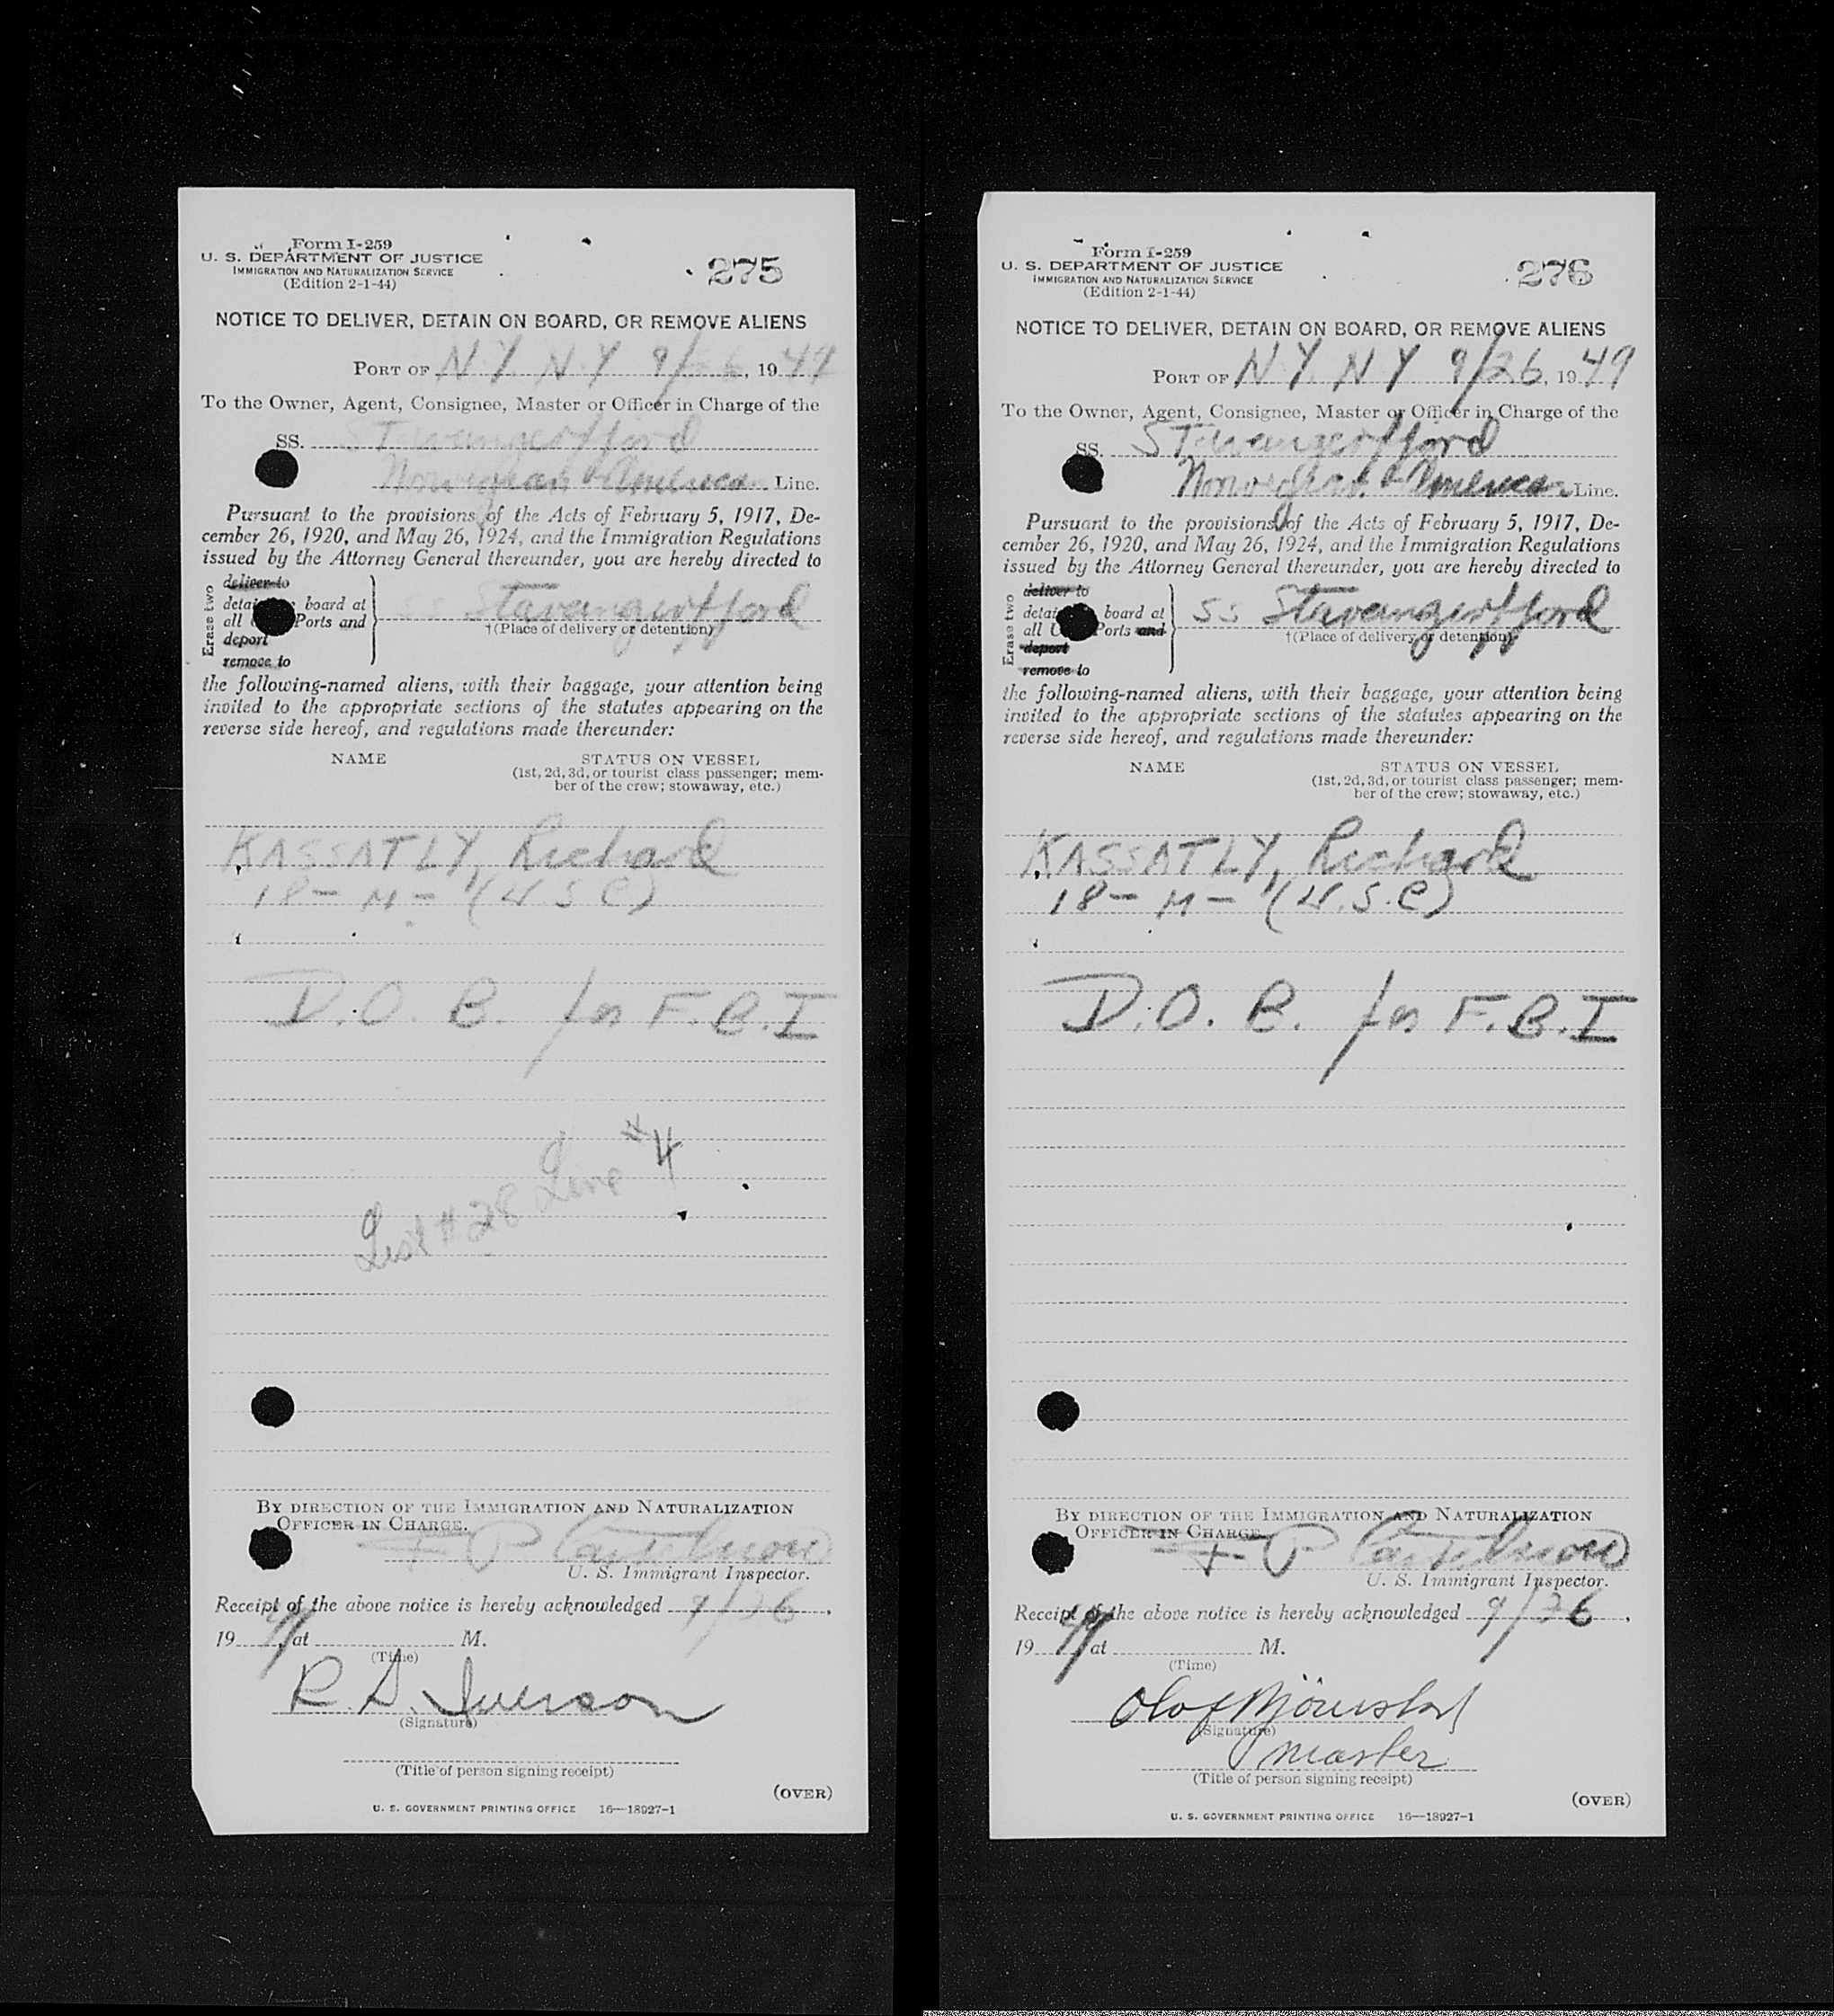 Form I-259
U. S. DEPARTMENT OF JUSTICE
IMMIGRATION AND NATURALIZATION SERVICE
(Edition 2-1-44)
275
NOTICE TO DELIVER, DETAIN ON BOARD, OR REMOVE ALIENS
PORT OF N.Y. N.Y 9/26, 1949
To the Owner, Agent, Consignee, Master or Officer in Charge of the
SS. STavangerfjord
Norwegian American Line.
Pursuant to the provisions of the Acts of February 5, 1917, De-
cember 26, 1920, and May 26, 1924, and the Immigration Regulations
issued by the Attorney General thereunder, you are hereby directed to
Erase two
deliver to
detai board at
all Ports and
deport
remove to
SS Stavangerfjord
†(Place of delivery or detention)
the following-named aliens, with their baggage, your attention being
invited to the appropriate sections of the statutes appearing on the
reverse side hereof, and regulations made thereunder:
NAME
STATUS ON VESSEL
(1st, 2d, 3d, or tourist class passenger; mem-
ber of the crew; stowaway, etc.)
KASSATLY, Richard
18 - M - (U.S.C)
D.O.B. for F.B.I
List #28 Line #4
BY DIRECTION OF THE IMMIGRATION AND NATURALIZATION
OFFICER IN CHARGE.
U. S. Immigrant Inspector.
Receipt of the above notice is hereby acknowledged 9/26,
1949, at M.
(Time)
R. A. Iverson
(Signature)
(Title of person signing receipt)
(OVER)
U. S. GOVERNMENT PRINTING OFFICE 16—18927-1
Form I-259
U. S. DEPARTMENT OF JUSTICE
IMMIGRATION AND NATURALIZATION SERVICE
(Edition 2-1-44)
276
NOTICE TO DELIVER, DETAIN ON BOARD, OR REMOVE ALIENS
PORT OF N.Y. N.Y 9/26, 1949
To the Owner, Agent, Consignee, Master or Officer in Charge of the
SS. STavangerfjord
Norwegian American Line.
Pursuant to the provisions of the Acts of February 5, 1917, De-
cember 26, 1920, and May 26, 1924, and the Immigration Regulations
issued by the Attorney General thereunder, you are hereby directed to
Erase two
deliver to
detai board at
all U Ports and
deport
remove to
SS Stavangerfjord
†(Place of delivery or detention)
the following-named aliens, with their baggage, your attention being
invited to the appropriate sections of the statutes appearing on the
reverse side hereof, and regulations made thereunder:
NAME
STATUS ON VESSEL
(1st, 2d, 3d, or tourist class passenger; mem-
ber of the crew; stowaway, etc.)
KASSATLY, Richard
18 - M - (U.S.C)
D.O.B. for F.B.I
BY DIRECTION OF THE IMMIGRATION AND NATURALIZATION
OFFICER IN CHARGE.
U. S. Immigrant Inspector.
Receipt of the above notice is hereby acknowledged 9/26,
1949, at M.
(Time)
Olof Bjørnstad
(Signature)
master
(Title of person signing receipt)
(OVER)
U. S. GOVERNMENT PRINTING OFFICE 16—18927-1